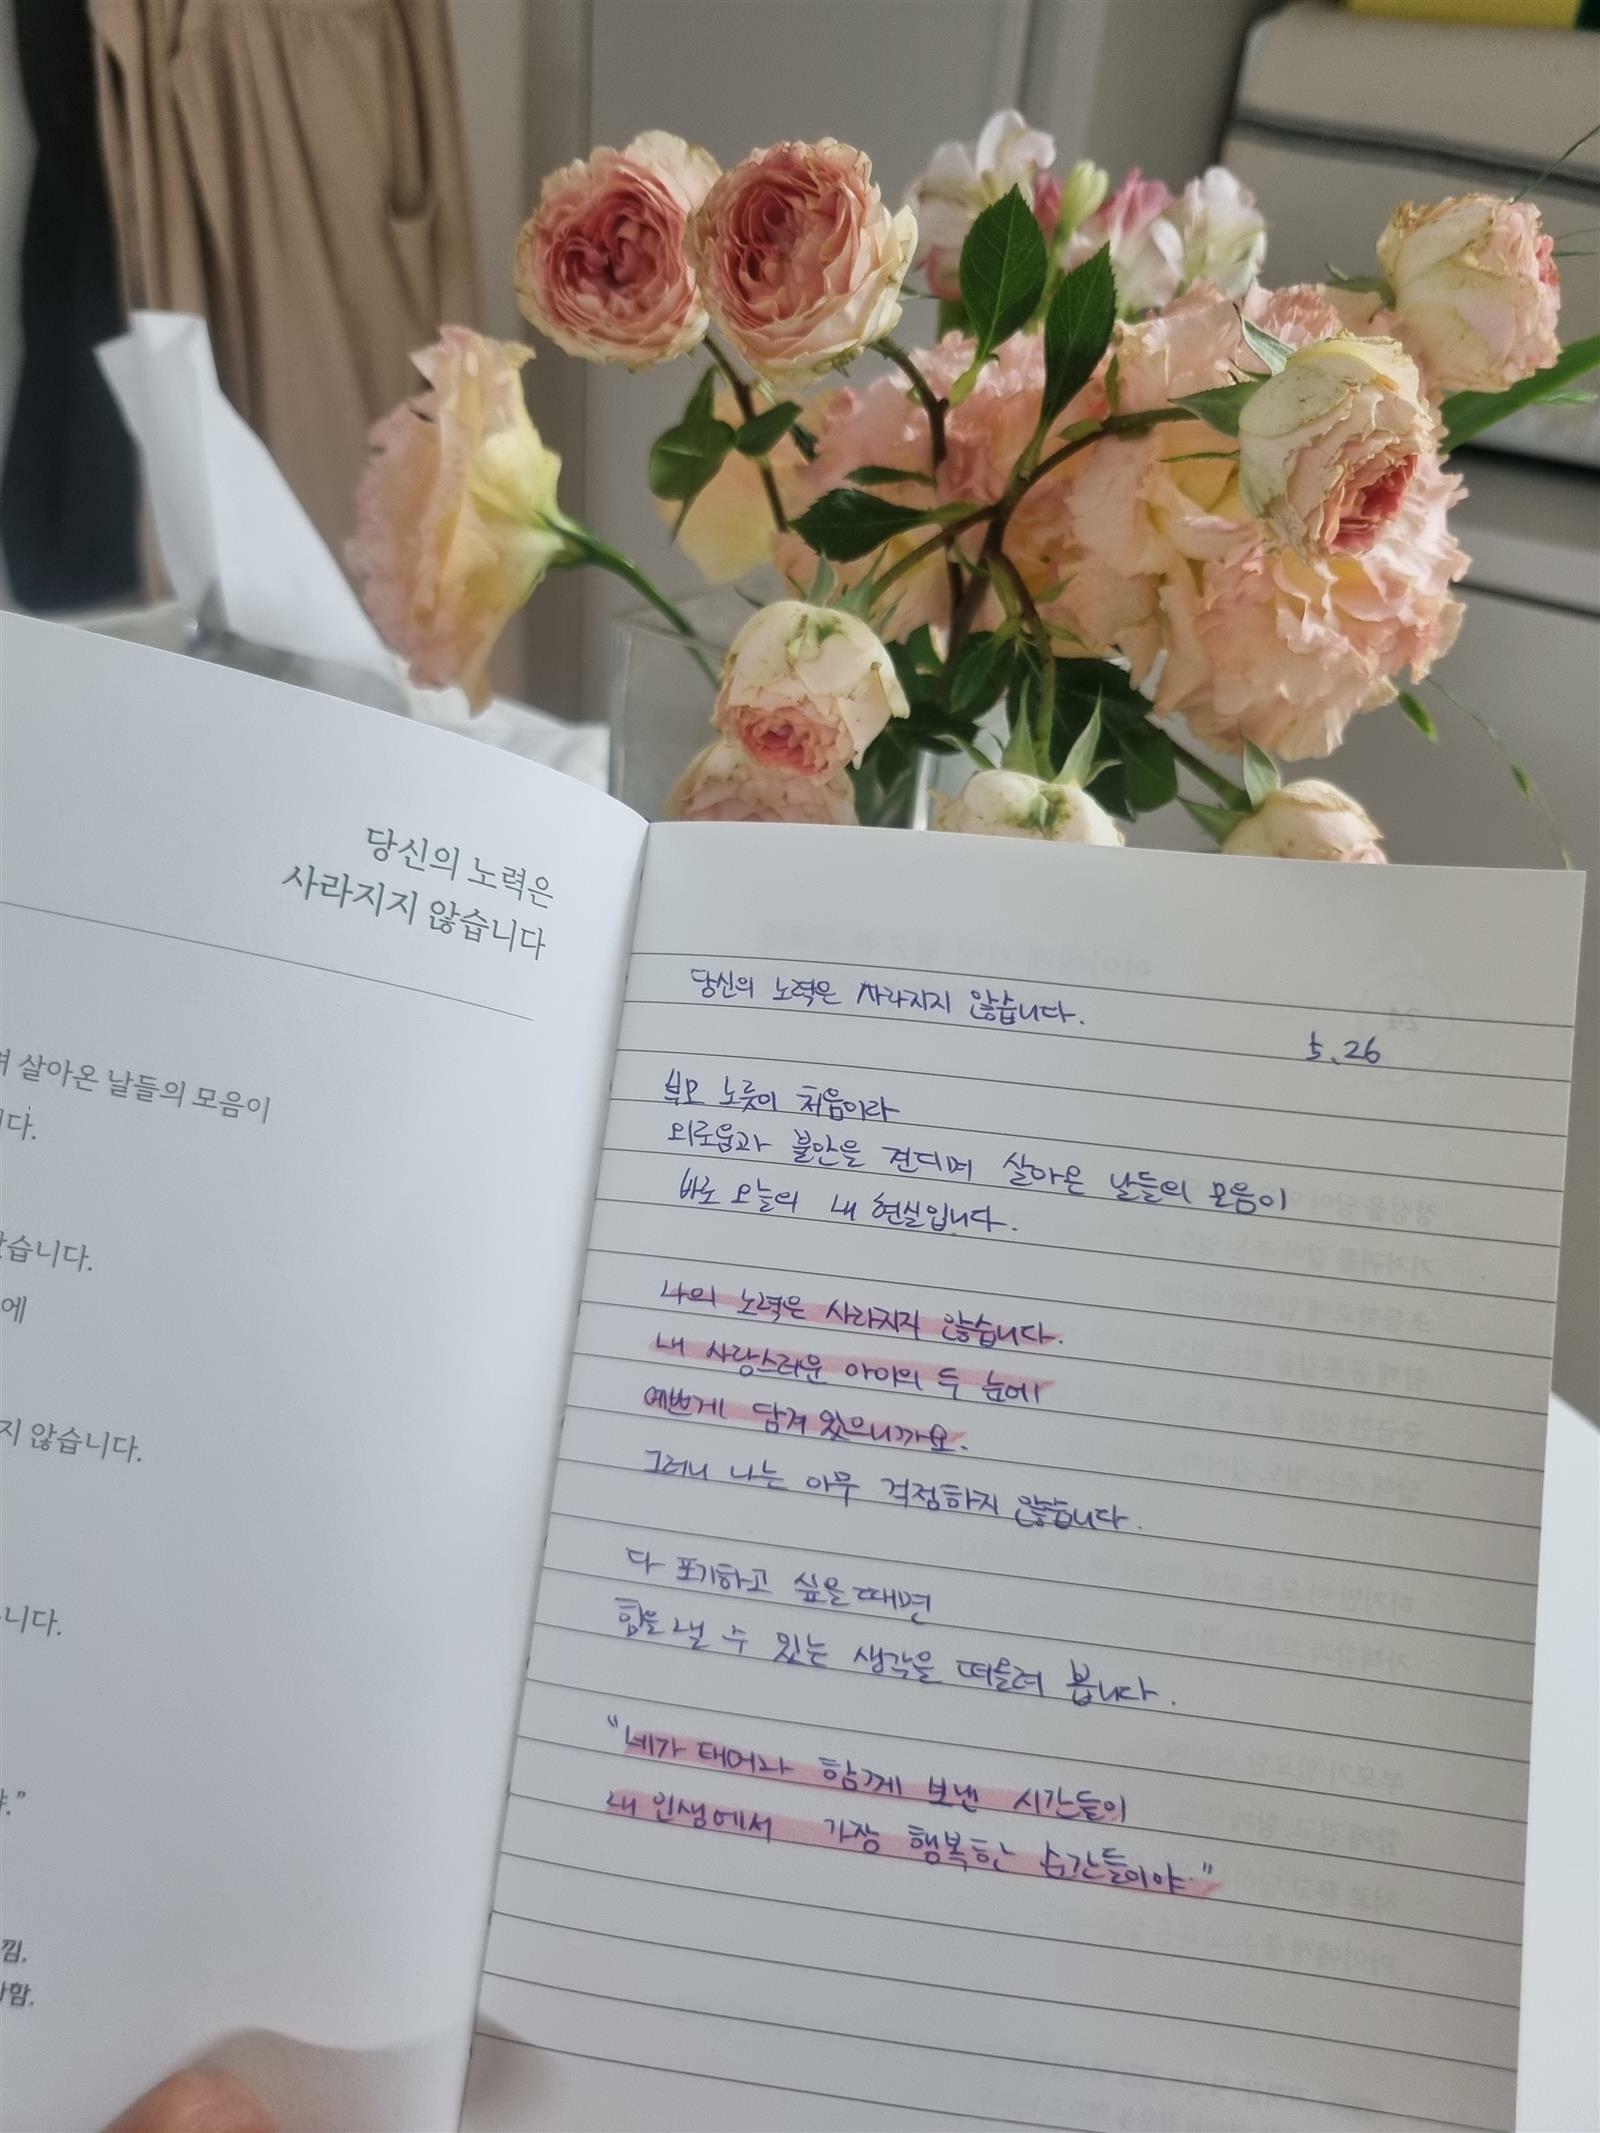 당신의 노력은
사라지지 않습니다
살아온 날들의 모음이
니다.
습니다.
에
지 않습니다.
니다.
낌.
함.
당신의 노력은 사라지지 않습니다.
5.26
부모 노릇이 처음이라
외로움과 불안을 견디며 살아온 날들의 모음이
바로 오늘의 내 현실입니다.
나의 노력은 사라지지 않습니다.
내 사랑스러운 아이의 두 눈에
예쁘게 담겨 있으니까요.
그러니 나는 아무 걱정하지 않습니다.
다 포기하고 싶을때면
힘을 낼 수 있는 생각을 떠올려 봅니다.
"네가 태어나 함께 보낸 시간들이
내 인생에서 가장 행복한 순간들이야."